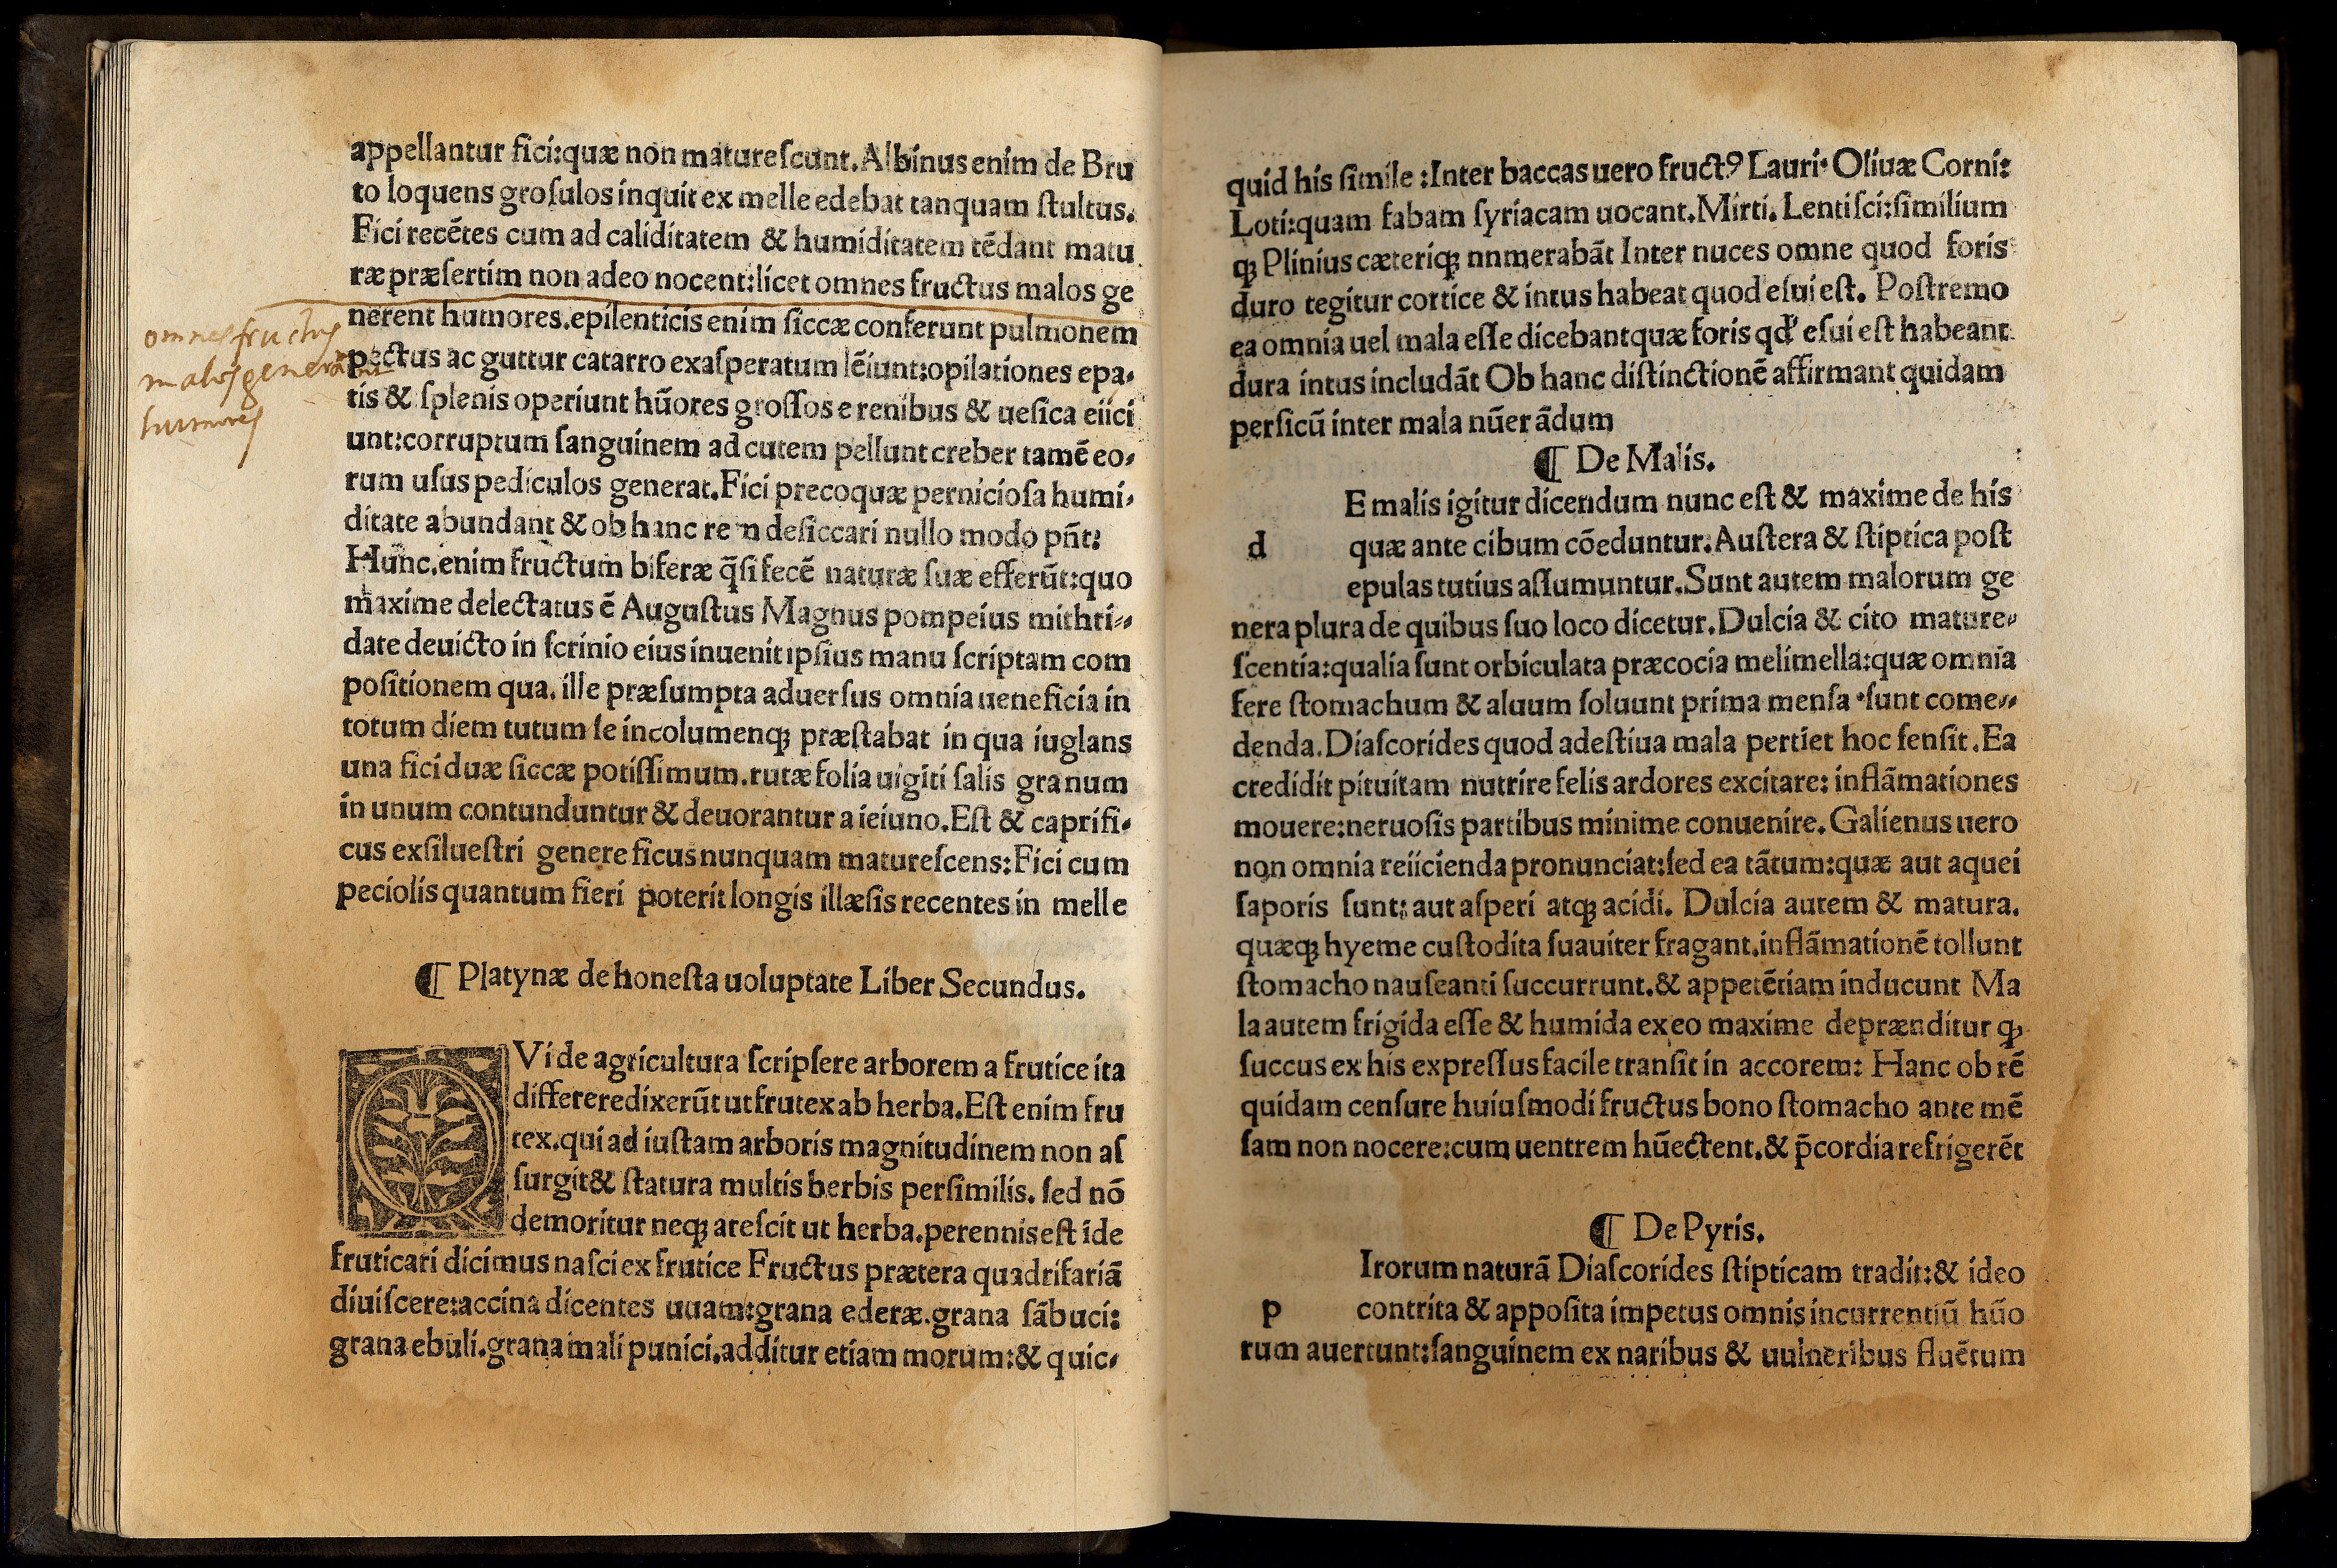 appellantur fici:quæ non matureſcunt.Albinus enim de Bru
to loquens groſulos inquit ex melle edebat tanquam ſtultus.
Fici recētes cum ad caliditatem & humiditatem tēdant matu
ræ præſertim non adeo nocent:licet omnes fructus malos ge
nerent humores.epilenticis enim ſiccæ conferunt pulmonem
pectus ac guttur catarro exaſperatum lēiunt:opilationes epa⸗
tis & ſplenis operiunt hūores groſſos e renibus & ueſica eiici
unt:corruptum ſanguinem ad cutem pellunt creber tamē eo⸗
rum uſus pediculos generat.Fici precoquæ pernicioſa humi⸗
ditate abundant & ob hanc rem deſiccari nullo modo pn̄t:
Hunc.enim fructum biferæ q̄ſi fecē naturæ ſuæ efferūt:quo
maxime delectatus ē Auguſtus Magnus pompeius mithri⸗
date deuicto in ſcrinio eius inuenit ipſius manu ſcriptam com
poſitionem qua. ille præſumpta aduerſus omnia ueneficia in
totum diem tutum ſe incolumenqꝫ præſtabat in qua iuglans
una fici duæ ſiccæ potiſſimum.rutæ folia uigīti ſalis granum
in unum contunduntur & deuorantur a ieiuno.Eſt & caprifi⸗
cus exſilueſtri genere ficus nunquam matureſcens:Fici cum
peciolis quantum fieri poterit longis illæſis recentes in melle
omnes fructus
malos generant
humores
¶ Platynæ de honeſta uoluptate Liber Secundus.
QVi de agricultura ſcripſere arborem a frutice ita
differere dixerūt ut frutex ab herba.Eſt enim fru
tex.qui ad iuſtam arboris magnitudinem non aſ
ſurgit & ſtatura multis herbis perſimilis. ſed nō
demoritur neqꝫ areſcit ut herba.perennis eſt īde
fruticari dicimus naſci ex frutice Fructus prætera quadrifariā
diuiſcere:accina dicentes uuam:grana ederæ.grana ſābuci:
grana ebuli.grana mali punici.additur etiam morum:& quic⸗
quid his ſimile :Inter baccas uero fructꝰ Lauri· Oliuæ Corni:
Loti:quam fabam ſyriacam uocant.Mirti. Lentiſci:ſimilium
qꝫ Plinius cæteriqꝫ nnmerabāt Inter nuces omne quod foris
duro tegitur cortice & intus habeat quod eſui eſt. Poſtremo
ea omnia uel mala eſſe dicebantquæ foris qd' eſui eſt habeant
dura intus includāt Ob hanc diſtinctionē affirmant quidam
perſicū inter mala nūerādum
¶ De Malis.
d E malis igitur dicendum nunc eſt & maxime de his
quæ ante cibum cōeduntur.Auſtera & ſtiptica poſt
epulas tutius aſſumuntur.Sunt autem malorum ge
nera plura de quibus ſuo loco dicetur.Dulcia & cito mature⸗
ſcentia:qualia ſunt orbiculata præcocia melimella:quæ omnia
fere ſtomachum & aluum ſoluunt prima menſa ·ſunt come⸗
denda.Diaſcorides quod adeſtiua mala pertiet hoc ſenſit.Ea
credidit pituitam nutrire felis ardores excitare: inflāmationes
mouere:neruoſis partibus minime conuenire.Galienus uero
non omnia reiicienda pronunciat:ſed ea tātum:quæ aut aquei
ſaporis ſunt: aut aſperi atqꝫ acidi. Dulcia autem & matura.
quæqꝫ hyeme cuſtodita ſuauiter fragant.inflāmationē tollunt
ſtomacho nauſeanti ſuccurrunt.& appetētiam inducunt Ma
la autem frigida eſſe & humida ex eo maxime deprænditur qꝫ
ſuccus ex his expreſſus facile tranſit in accorem: Hanc ob rē
quidam cenſure huiuſmodi fructus bono ſtomacho ante mē
ſam non nocere:cum uentrem hūectent.& p̄cordia refrigerēt
¶ De Pyris.
p Irorum naturā Diaſcorides ſtipticam tradit:& ideo
contrita & appoſita impetus omnis incurrentiū hūo
rum auertunt:ſanguinem ex naribus & uulneribus fluētum